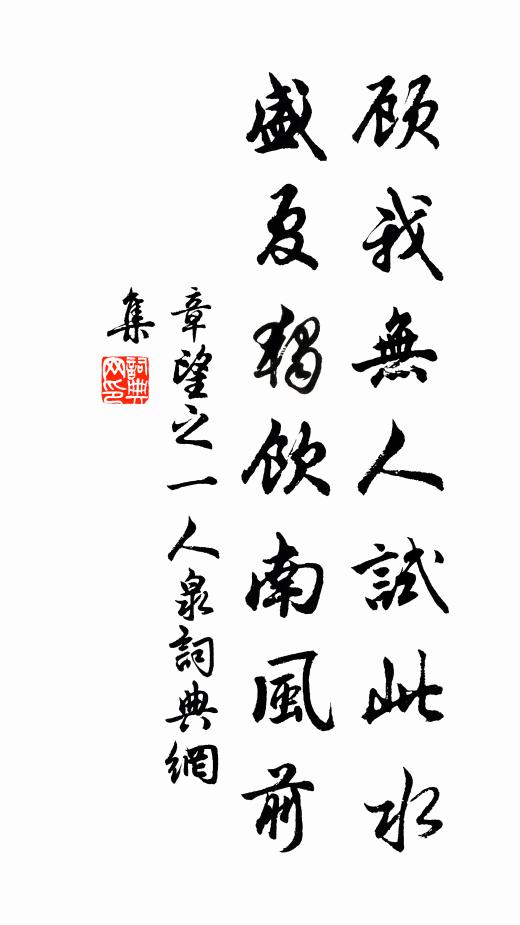 顾我無人試此水
盛夏獨飲南風前
章望之一人泉詞典網
集
詞典网印